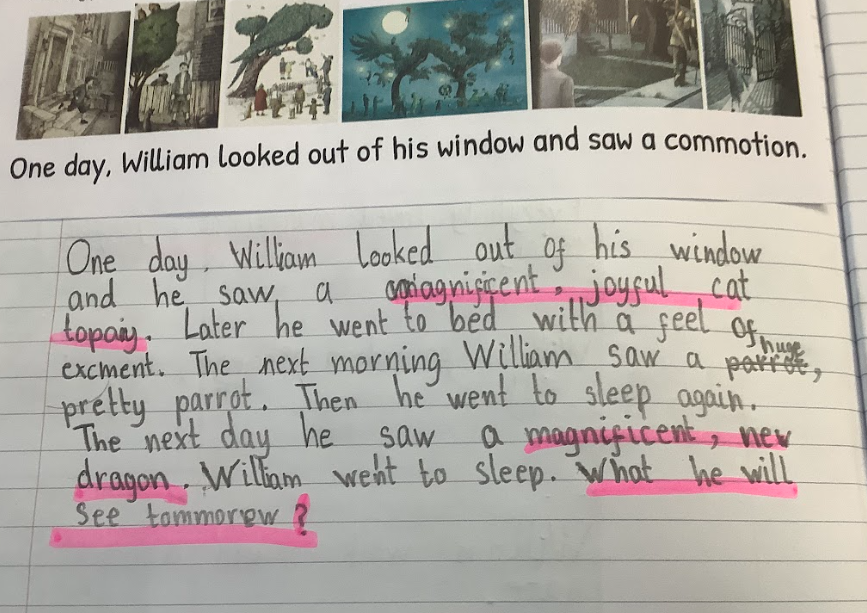 One day, William looked out of his window and saw a commotion.
One day, William looked out of his window
and he saw a magnificent, joyful cat
topaiy. Later he went to bed with a feel of
excment. The next morning William saw a huge,
pretty parrot. Then he went to sleep again.
The next day he saw a magnificent, new
dragon. William went to sleep. What he will
see tommorew?